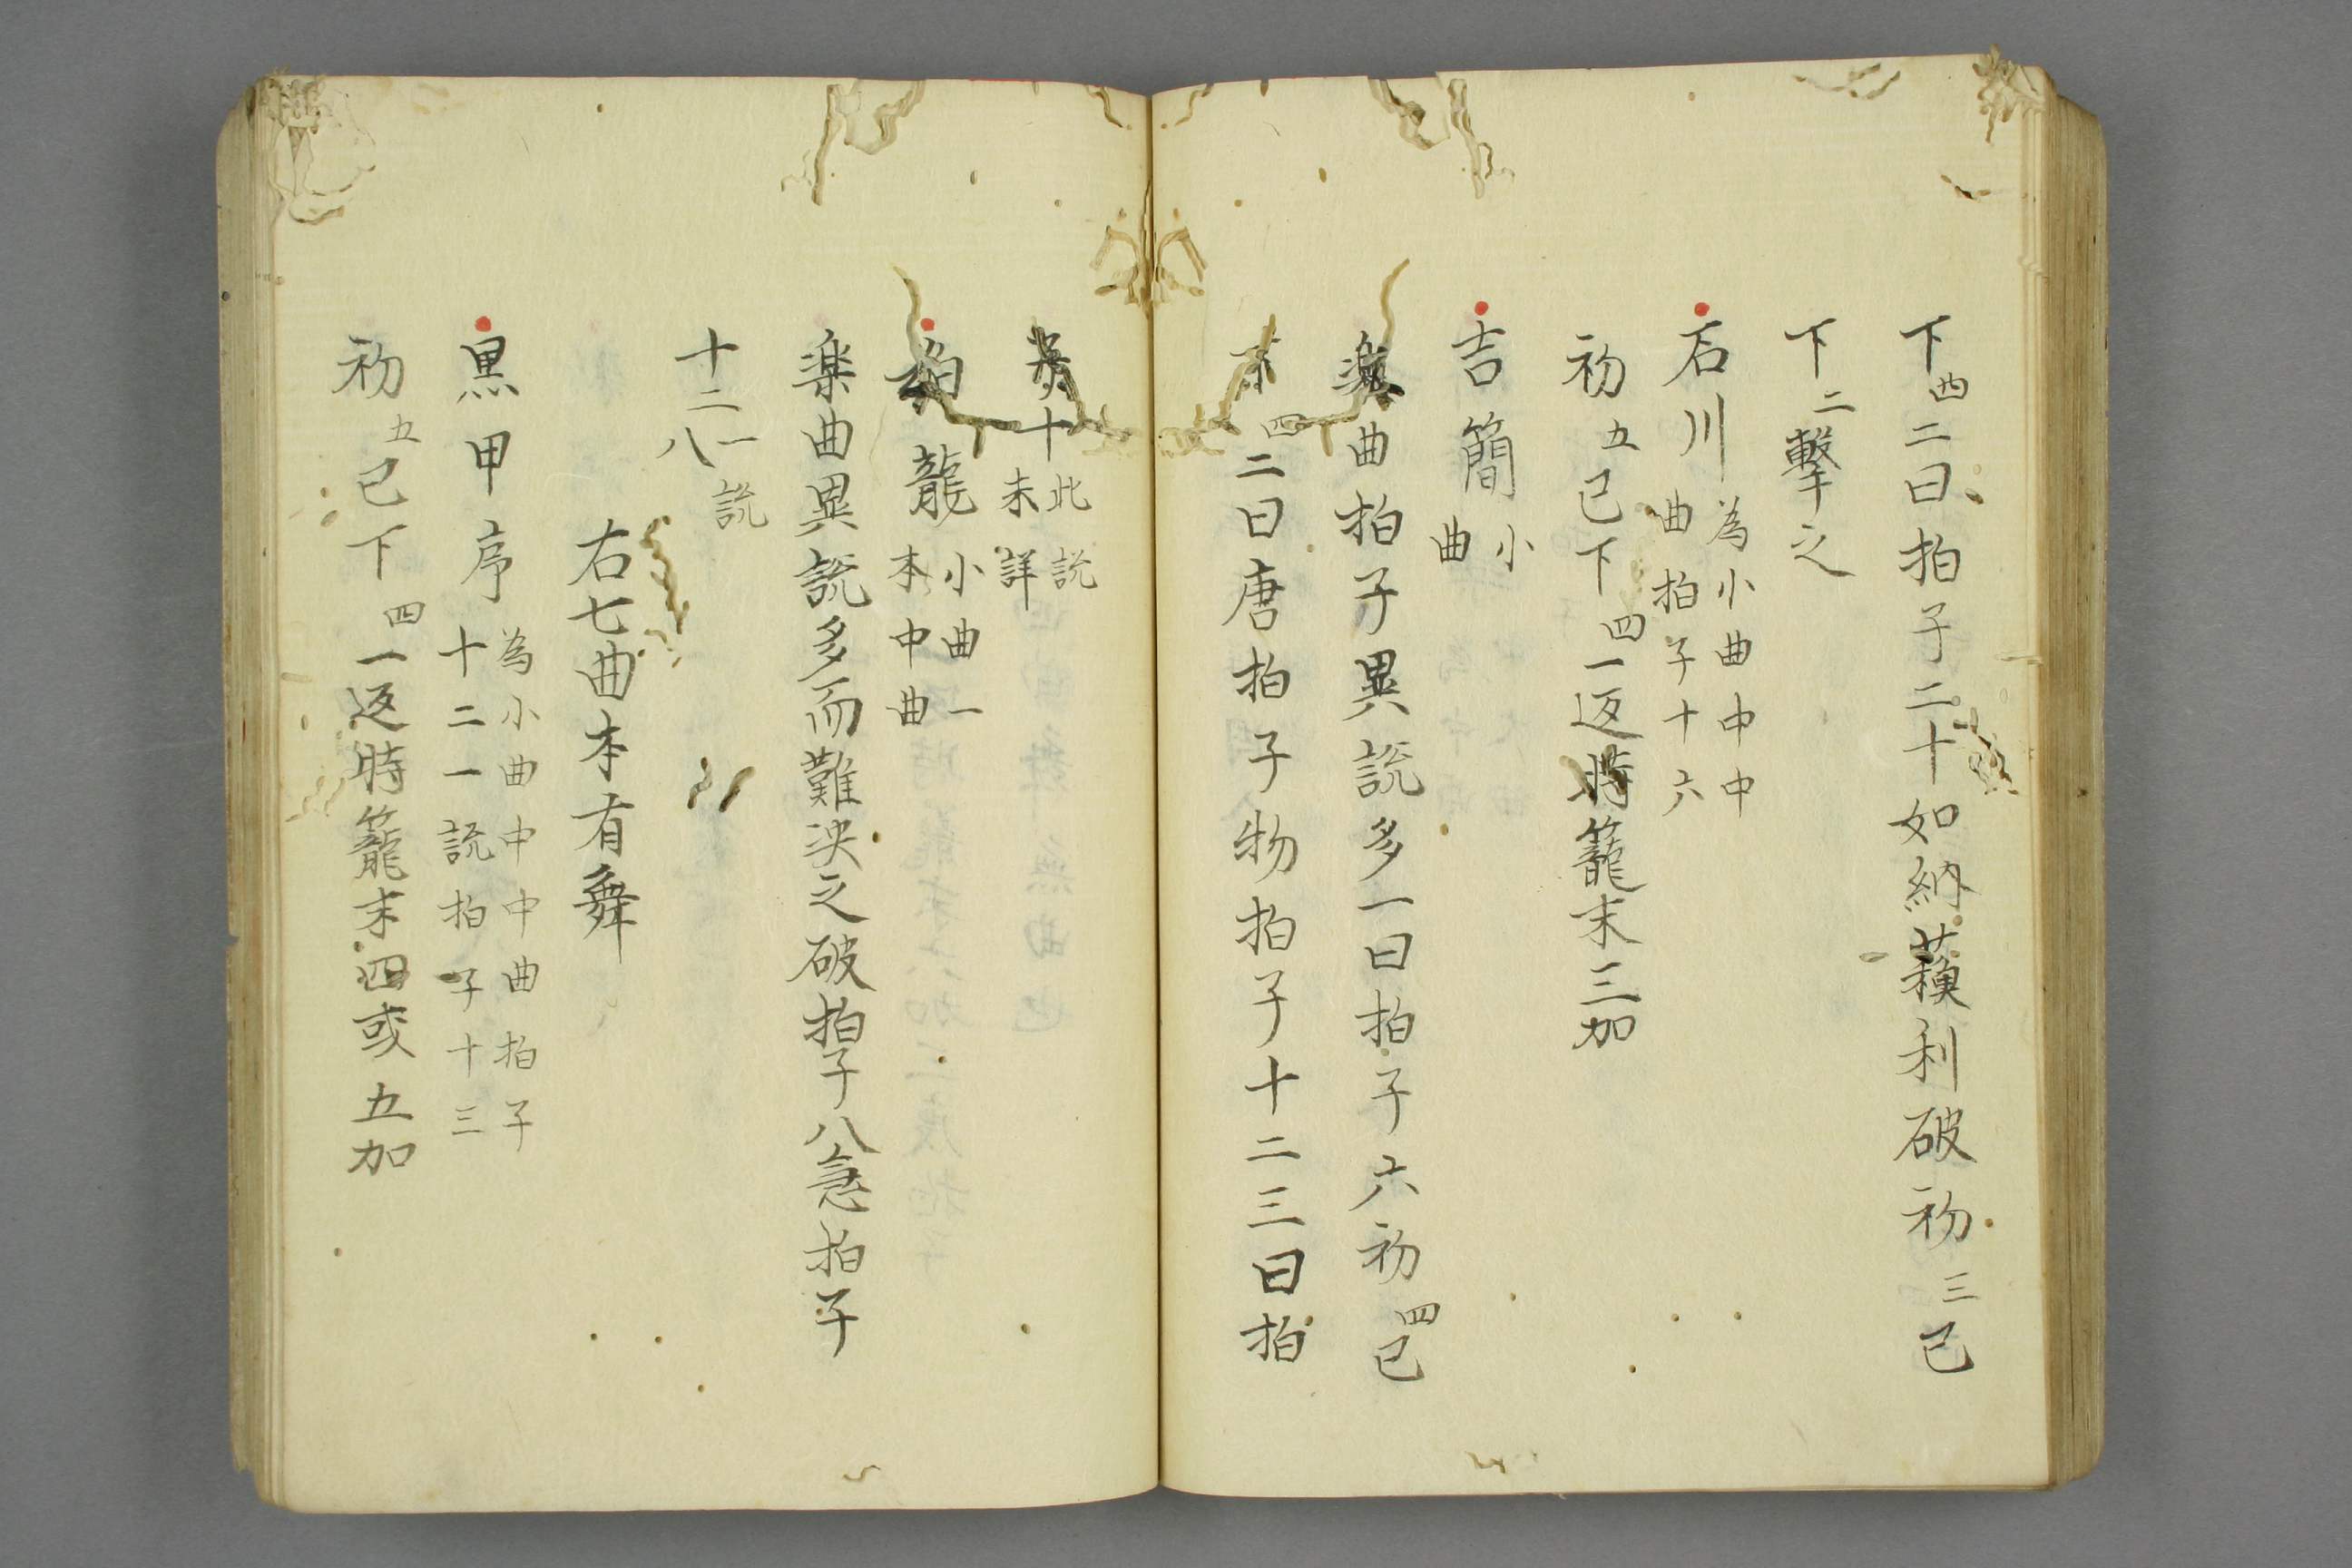 下四二曰拍子二十如納蘓利破初三已
下二擊之
石川為小曲中中曲拍子十六
初五已下四一返時籠末三加
吉簡小曲
曲拍子異說多一曰拍子六初四已
四二曰唐拍子物拍子十二三曰拍
十此說未詳
狛龍小曲一本中曲
楽曲異說多而難決之破拍子八急拍子
十二一說八
右七曲本有舞
黒甲序為小曲中中曲拍子十二一說拍子十三
初五已下四一返時籠末四或五加